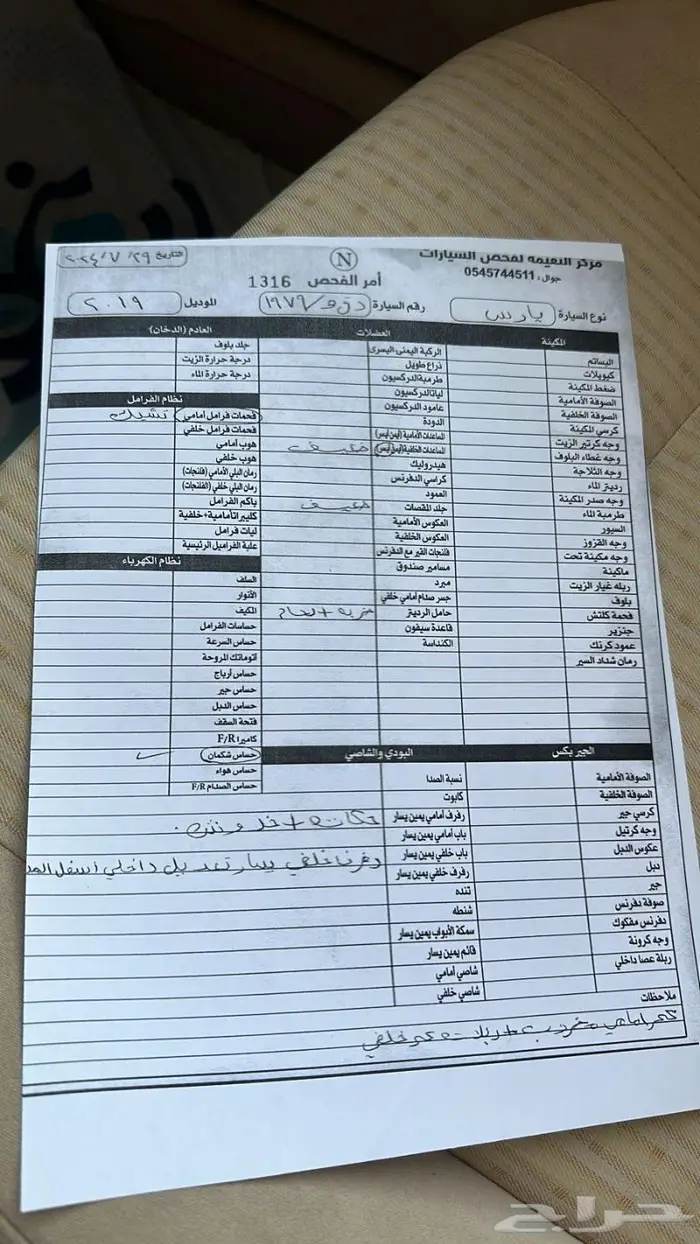 مركز النعيمه لفحص السيارات
جوال : 0545744511
N
أمر الفحص 1316
التاريخ ٢٠٢٤/٧/٢٩
نوع السيارة يارس
رقم السيارة ١٩٧٩
الموديل ٢٠١٩
المكينة
البساتم
كبويلات
ضغط المكينة
الصوفة الأمامية
الصوفة الخلفية
كرسي المكينة
وجه كرتير الزيت
وجه غطاء البلوف
وجه الثلاجة
رديتر الماء
وجه صدر المكينة
طرمبة الماء
السيور
وجه القزوز
وجه مكينة تحت
ماكينة
ربله غيار الزيت
بلوف
فحمة كلتش
جنزير
عمود كرنك
رمان شداد السير
العضلات
الركبة اليمنى:اليسرى
ذراع طويل
طرمبة الدركسيون
ليات الدركسيون
عامود الدركسيون
الدودة
المساعدات الأمامية (أيمن أيسر)
المساعدات الخلفية (أيمن أيسر) ضعيف
هيدروليك
كراسي الدفرنس
العمود
جلد المقصات ضعيف
العكوس الأمامية
العكوس الخلفية
فلنجات القير مع الدفرنس
مسامير صندوق
مبرد
جسر صدام أمامي خلفي
حامل الرديتر ضربه + لحام
قاعدة سيفون
الكنداسة
العادم (الدخان)
جلد بلوف
درجة حرارة الزيت
درجة حرارة الماء
نظام الفرامل
قحمات فرامل أمامي تشيك
قحمات فرامل خلفي
هوب أمامي
هوب خلفي
رمان البلي الأمامي (فلنجات)
رمان البلي خلفي (الفلنجات)
باكم الفرامل
كليبرات أمامية + خلفية
ليات فرامل
علبة الفراميل الرئيسية
نظام الكهرباء
السلف
الأنوار
المكيف
حساسات الفرامل
حساس السرعة
أتوماتك المروحة
حساس أرباج
حساس جير
حساس الدبل
فتحة السقف
كاميرا F/R
حساس شكمان ✓
حساس هواء
حساس الصدام F/R
الجير بكس
الصوفة الأمامية
الصوفة الخلفية
كرسي جير
وجه كرتيل
عكوس الدبل
دبل
جير
صوفة دفرنس
دفرنس مفكوك
وجه كرونة
ربلة عصا داخلي
البودي والشاصي
نسبة الصدا
كابوت
رفرف أمامي يمين يسار حكات +
باب أمامي يمين يسار
باب خلفي يمين يسار
رفرف خلفي يمين يسار رفرف خلفي يسار تعديل داخلي أسفل
تنده
شنطه
سمكة الأبواب يمين يسار
قائم يمين يسار
شاصي أمامي
شاصي خلفي
ملاحظات
مضروب + ربلات خلفي
حراج